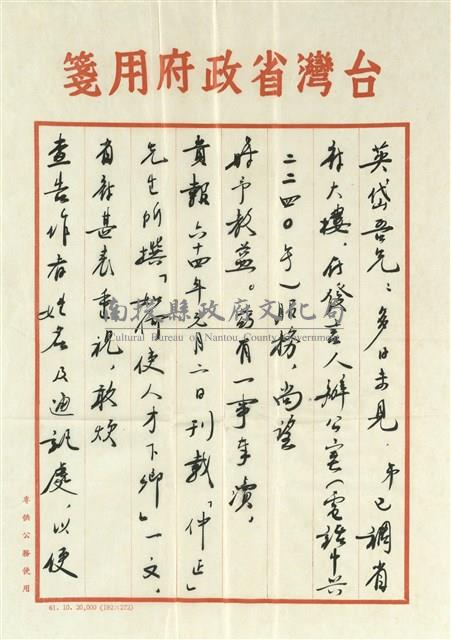 台灣省政府用箋
英岱吾兄：多日未見．弟已調省
府大樓．府發言人辦公室（電話中興
二二四〇号）服務，尚望
時予教益。茲有一事奉瀆，
貴報六十四年元月二日刊載「仲正」
先生所撰「如何使人才下鄉」一文，
省府甚表重視，敢煩
查告作者姓名及通訊處，以便
南投縣政府文化局
Cultural Bureau of Nantou County Government
專供公務使用
61. 10. 20,000 (192×272)